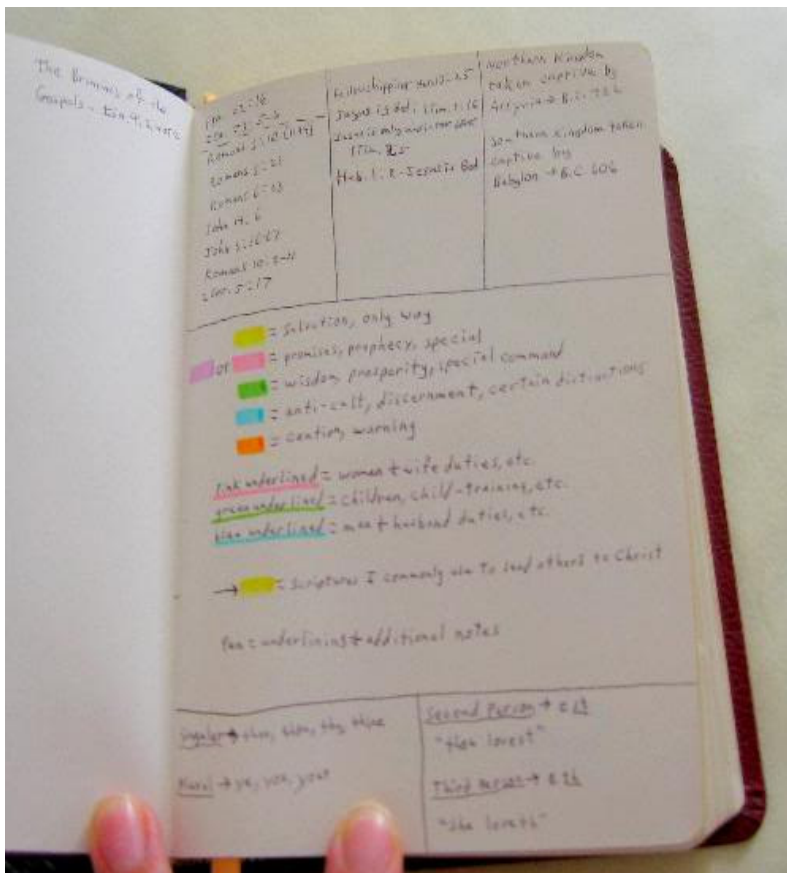 The
Gospels -
Romans
Romans 5:21
Romans 6:23
John 14:6
John 3:16-17
Romans 10:
5:17
Fellowshipping
Jesus is God: 1 Tim.
Jesus is only
1 Tim. 2:5
Heb. 1:8 - Jesus is God
Northern Kingdom
taken captive by
Assyria → B.C.
Southern Kingdom taken
captive by
Babylon → B.C. 606
= Salvation, only way
or = promises, prophecy, special
= wisdom, prosperity, special command
= anti-cult, discernment, certain distinctions
= caution, warning
Pink underlined = women + wife duties, etc.
green underlined = children, child-training, etc.
blue underlined = men + husband duties, etc.
→ = Scriptures I commonly use to lead others to Christ
Pen = underlining + additional notes
Singular → thee, thou, thy, thine
Plural → ye, you, your
Second Person → est
"thou lovest"
Third Person → eth
"she loveth"